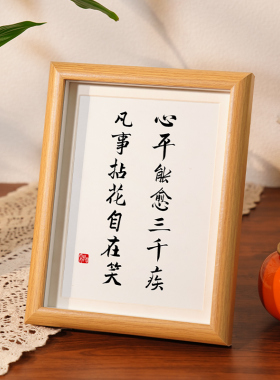 心平能愈三千疾
凡事拈花自在笑